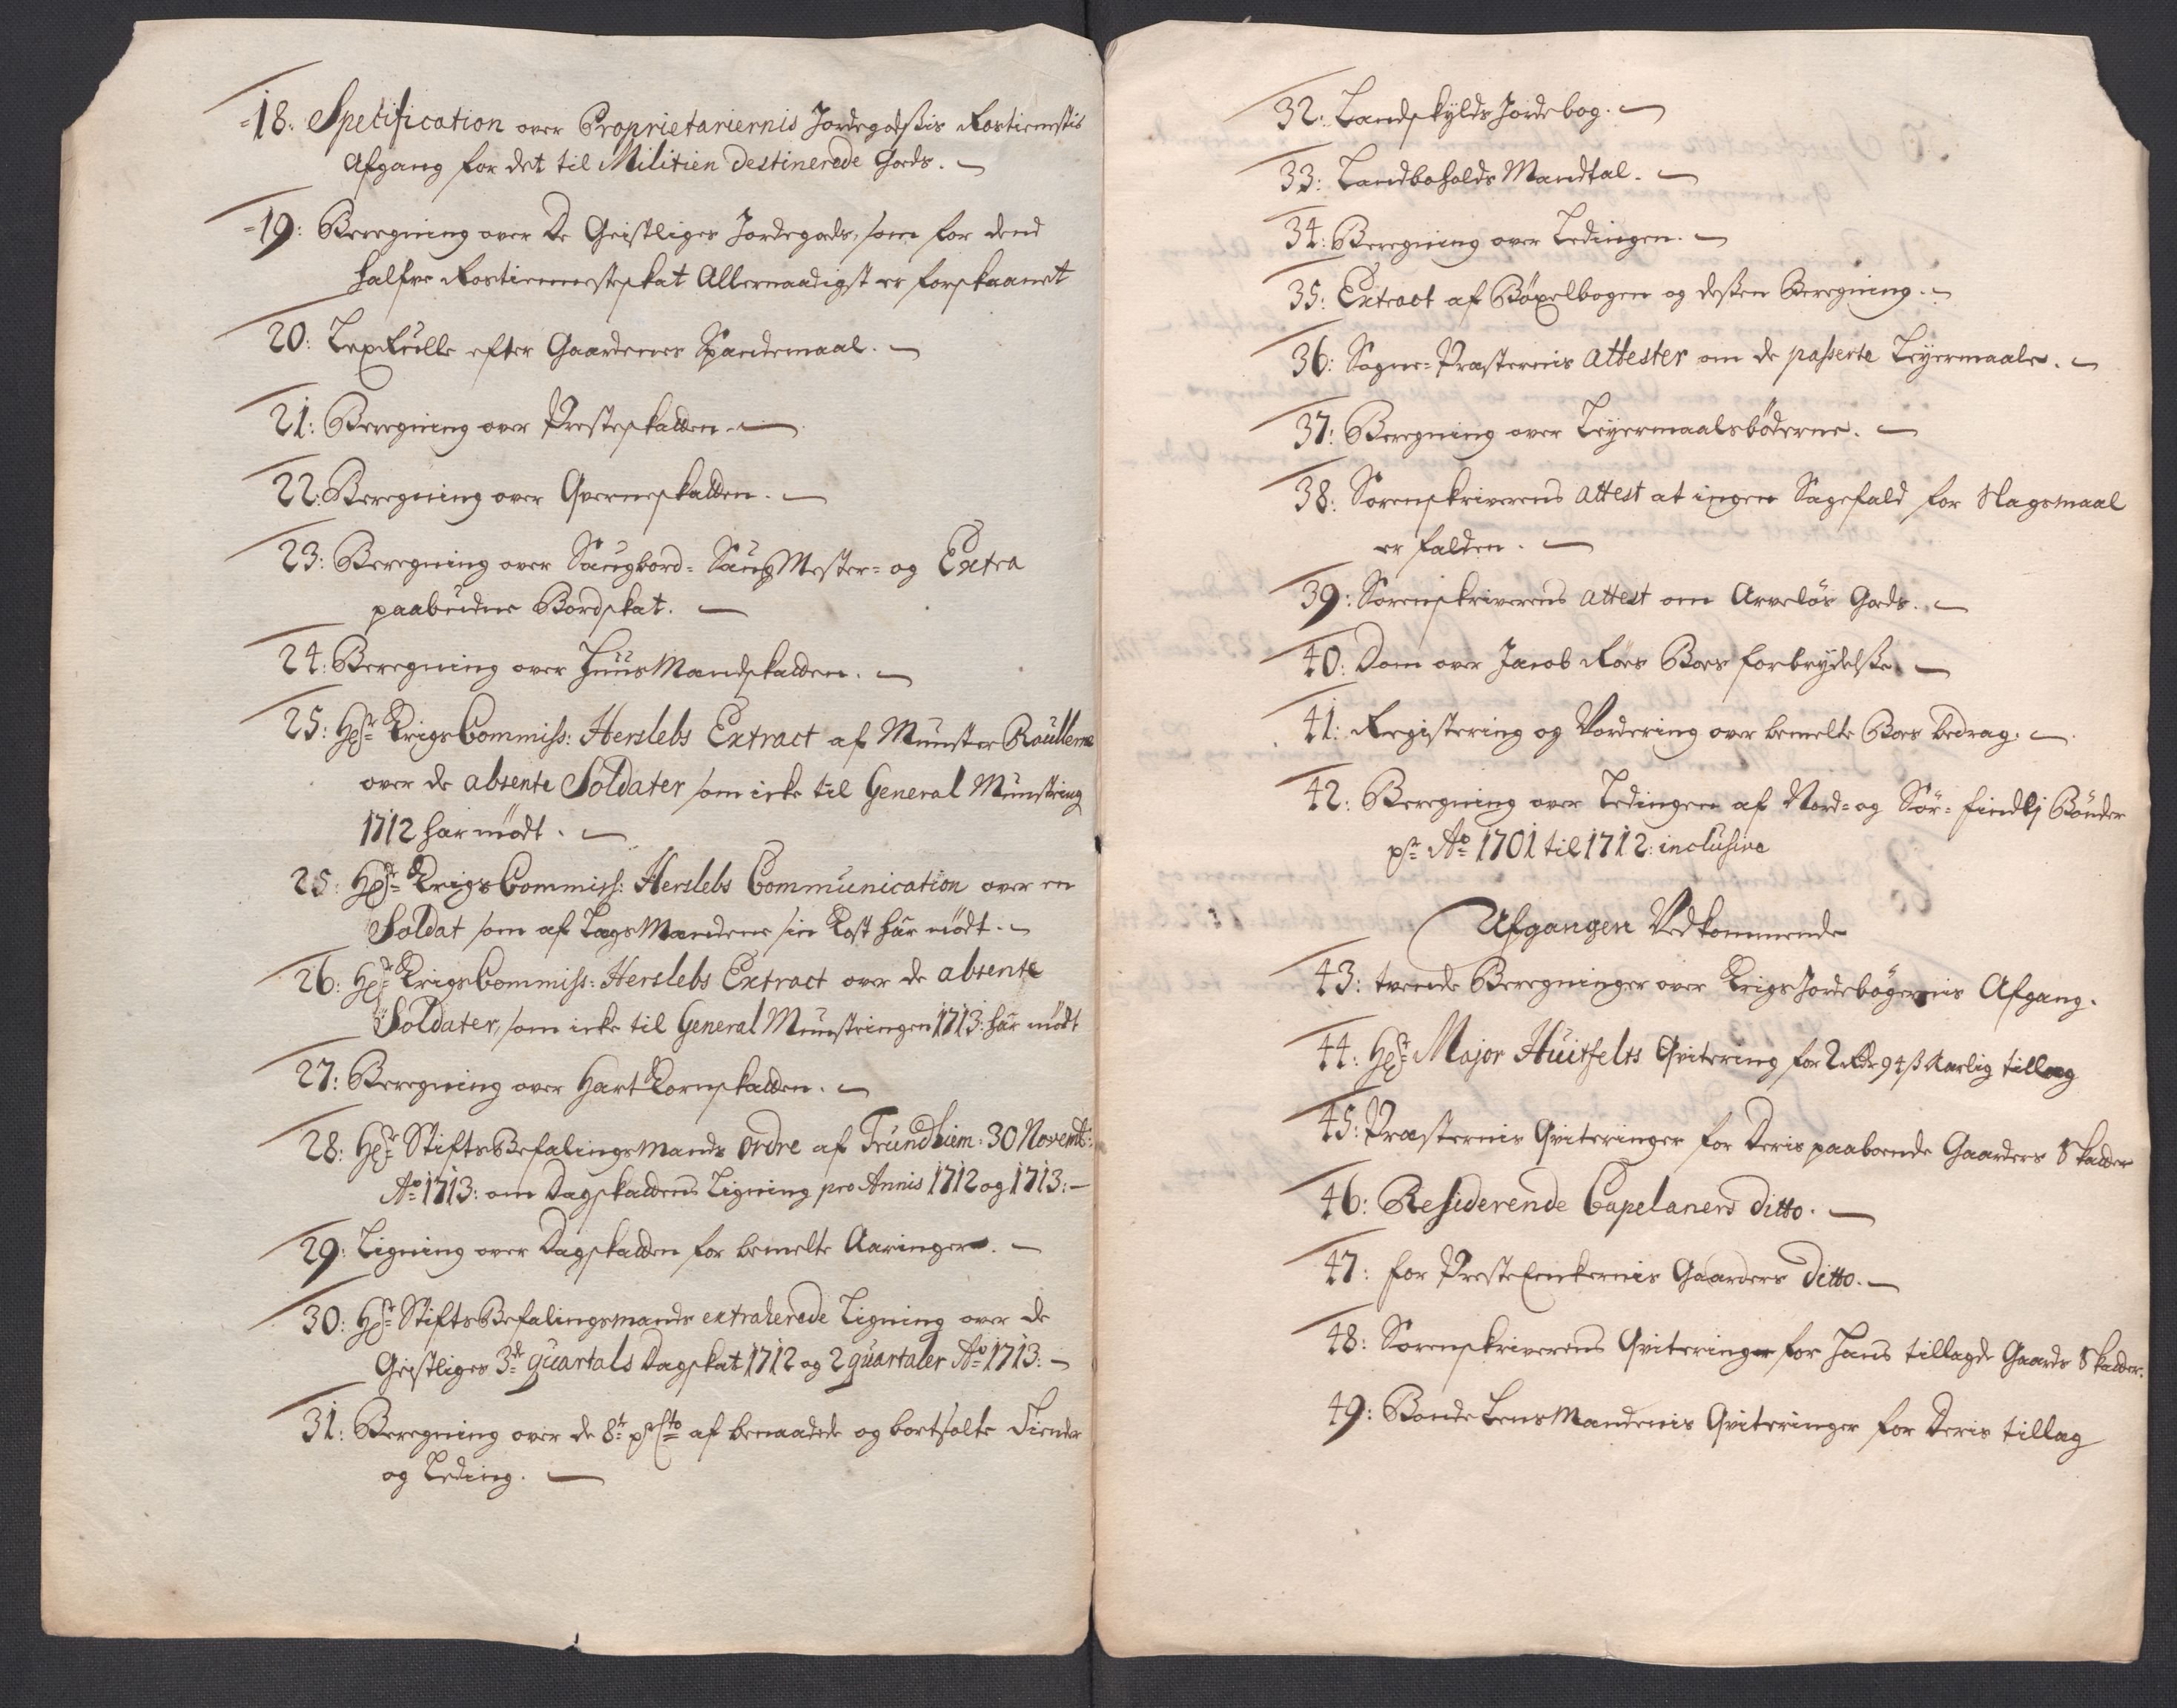 18: Spetification over Proprietariernis Jordegodssis Rostienestis
Afgang for det til Militien destinerede Gods.
19: Beregning over De Geistliges Jordegods, som for dend
halfve Rostienesteskat Allernaadigst er forskaanet
20: Lex Rulle efter Gaardenes Spandemaal.
21: Beregning over Presteskatten.
22: Beregning over Qverneskatten.
23: Beregning over Saugbord- Saug Mester- og Extra
paabudne Bordskat.
24: Beregning over Huus Mandskatten.
25: Hr: Krigs Commiss: Herslebs Extract af Munster Roullerne
over de absente Soldater som icke til General Munstring
1712 har mødt.
25: Hr: Krigs Commiss: Herslebs Communication over en
Soldat som af Lægs Mandene sin Kost har nødt.
26: Hr: Krigs Commiss: Herslebs Extract over de absente
Soldater, som icke til General Munstringen 1713: har mødt
27: Beregning over Hart Kornskatten.
28: Hr: Stifts Befalingsmands ordre af Trundhiem: 30 Novembr:
Ao 1713: om Dagskattens Ligning pro Annis 1712 og 1713:
29: Ligning over Dagskatten for bemelte Aaringer.
30: Hr: Stifts Befalingsmands extraherede Ligning over de
Geistliges 3de quartals Dagskat 1712 og 2 quartaler Ao 1713:
31: Beregning over de 8te p Cto af benaadede og bortsolte Tiender
og Leding.
32: Landskylds Jordebog.
33: Landboholds Mandtal.
34: Beregning over Ledingen.
35: Extract af Bøxelbogen og dessen Beregning.
36: Sogne-Præsternis attester om de passerte Leyermaaler.
37: Beregning over Leyermaalsbøderne.
38: Sorenskriverens attest at ingen Sagefald for Slagsmaal
er falden.
39: Sorenskriverens attest om Arveløs Gods.
40: Dom over Jacob Roes Boes forbrydelse.
41: Registering og Vordering over bemelte Boes bedrag.
42: Beregning over Ledingen af Nord- og Sør- findlj Bønder
pr Ao 1701 til 1712: inclusive
Afgangen Vedkommende
43: tvende Beregninger over Krigs Jordebøgernis Afgang.
44: Hr: Major Huitfelts Qvitering for 2 Rdr 94 ß Aarlig tillæg
45: Præsternis Qviteringer for Deris paaboende Gaarders Skatter
46: Residerende Capelaners ditto.
47: for Preste Enckernis Gaarders Ditto.
48: Sorenskriverens Qviteringer for hans tillagde Gaards Skatter.
49: Bonde Lens Mandenis Qviteringer for Deris tillæg